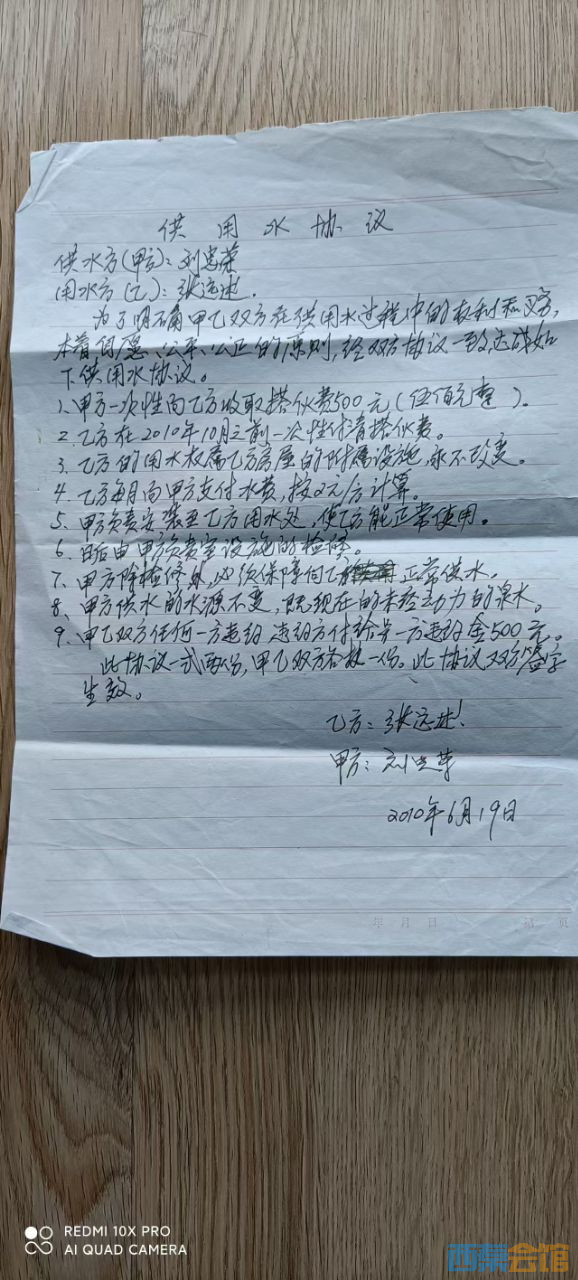 供用水协议
供水方(甲方):刘忠荣
用水方(乙):张远述.
为了明确甲乙双方在供用水过程中的权利和义务,
本着自愿、公平、公正的原则,经双方协议一致,达成如
下供用水协议。
1、甲方一次性向乙方收取搭伙费500元(伍佰元整)。
2、乙方在2010年10月之前一次性付清搭伙费。
3、乙方的用水权属乙方房屋的附属设施,永不改变。
4、乙方每月向甲方支付水费,按2元/方计算。
5、甲方负责安装至乙方用水处,使乙方能正常使用。
6、日后由甲方负责室设施的检修。
7、甲方除检修外,必须保障向乙方正常供水。
8、甲方供水的水源不变,既现在的未经动力的泉水。
9、甲乙双方任何一方违约 违约方付给另一方违约金500元。
此协议一式两份,甲乙双方各执一份。此协议双方签字
生效。
乙方:张远述
甲方:刘忠荣
2010年6月19日
年 月 日 第 页
REDMI 10X PRO
AI QUAD CAMERA
西渠会馆